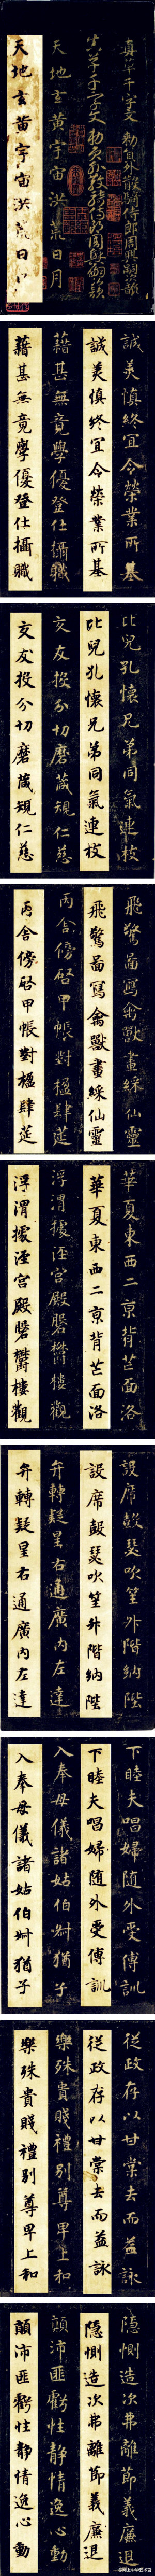 真草千字文 勅員外散騎侍郎周興嗣次韻
天地玄黄宇宙洪荒日月
天地玄黄宇宙洪荒日
誠美慎終宜令榮業所基
誠美慎終宜令榮業所基
藉甚無竟學優登仕攝職
藉甚無竟學優登仕攝職
比兒孔懷兄弟同氣連枝
比兒孔懷兄弟同氣連枝
交友投分切磨葴規仁慈
交友投分切磨葴規仁慈
飛驚啚寫禽獸畫綵仙靈
飛驚啚寫禽獸畫綵仙靈
丙舍傍啓甲帳對楹肆筵
丙舍傍啓甲帳對楹肆筵
華夏東西二京背芒面洛
華夏東西二京背芒面洛
浮渭據涇宮殿磐欝樓觀
浮渭據涇宮殿磐欝樓觀
設席鼓瑟吹笙升階納陛
設席鼓瑟吹笙升階納陛
弁轉疑星右通廣內左達
弁轉疑星右通廣內左達
下睦夫唱婦随外受傅訓
下睦夫唱婦随外受傅訓
入奉母儀諸姑伯叔猶子
入奉母儀諸姑伯叔猶子
從政存以甘棠去而益詠
從政存以甘棠去而益詠
樂殊貴賤禮別尊卑上和
樂殊貴賤禮別尊卑上和
隱惻造次弗離節義廉退
隱惻造次弗離節義廉退
顛沛匪虧性靜情逸心動
顛沛匪虧性靜情逸心動